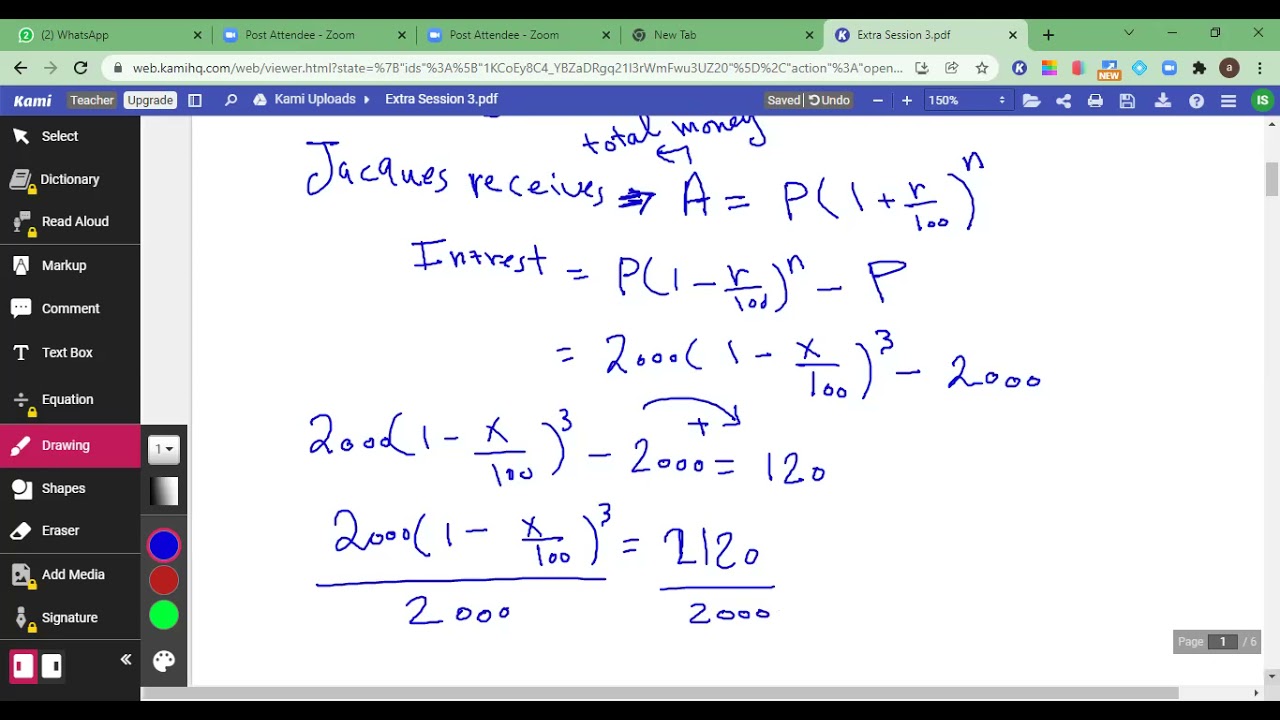 (2) WhatsApp
Post Attendee - Zoom
Post Attendee - Zoom
New Tab
Extra Session 3.pdf
web.kamihq.com/web/viewer.html?state=%7B"ids"%3A%5B"1KCoEy8C4_YBZaDRgq21I3rWmFwu3UZ20"%5D%2C"action"%3A"open...
NEW
a
Kami Teacher Upgrade Kami Uploads Extra Session 3.pdf Saved Undo 150% IS
Select
Dictionary
Read Aloud
Markup
Comment
Text Box
Equation
Drawing
Shapes
Eraser
Add Media
Signature
1
total money
Jacques receives ⇒ A = P(1 + r/100)^n
Intrest = P(1 - r/100)^n - P
= 2000(1 - x/100)^3 - 2000
2000(1 - x/100)^3 - 2000 = 120
+
2000(1 - x/100)^3 / 2000 = 2120 / 2000
Page 1 / 6